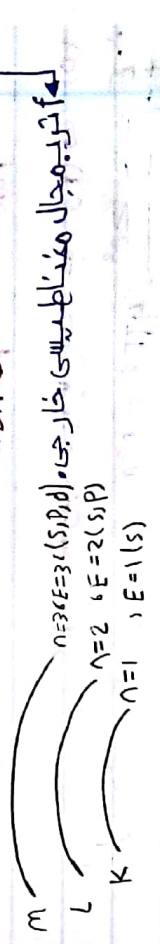 تأثر بمجال مغناطيسي خارجي.
M n=3، E=3، (s,p,d)
L n=2، E=2(s,p)
K n=1 , E=1(s)